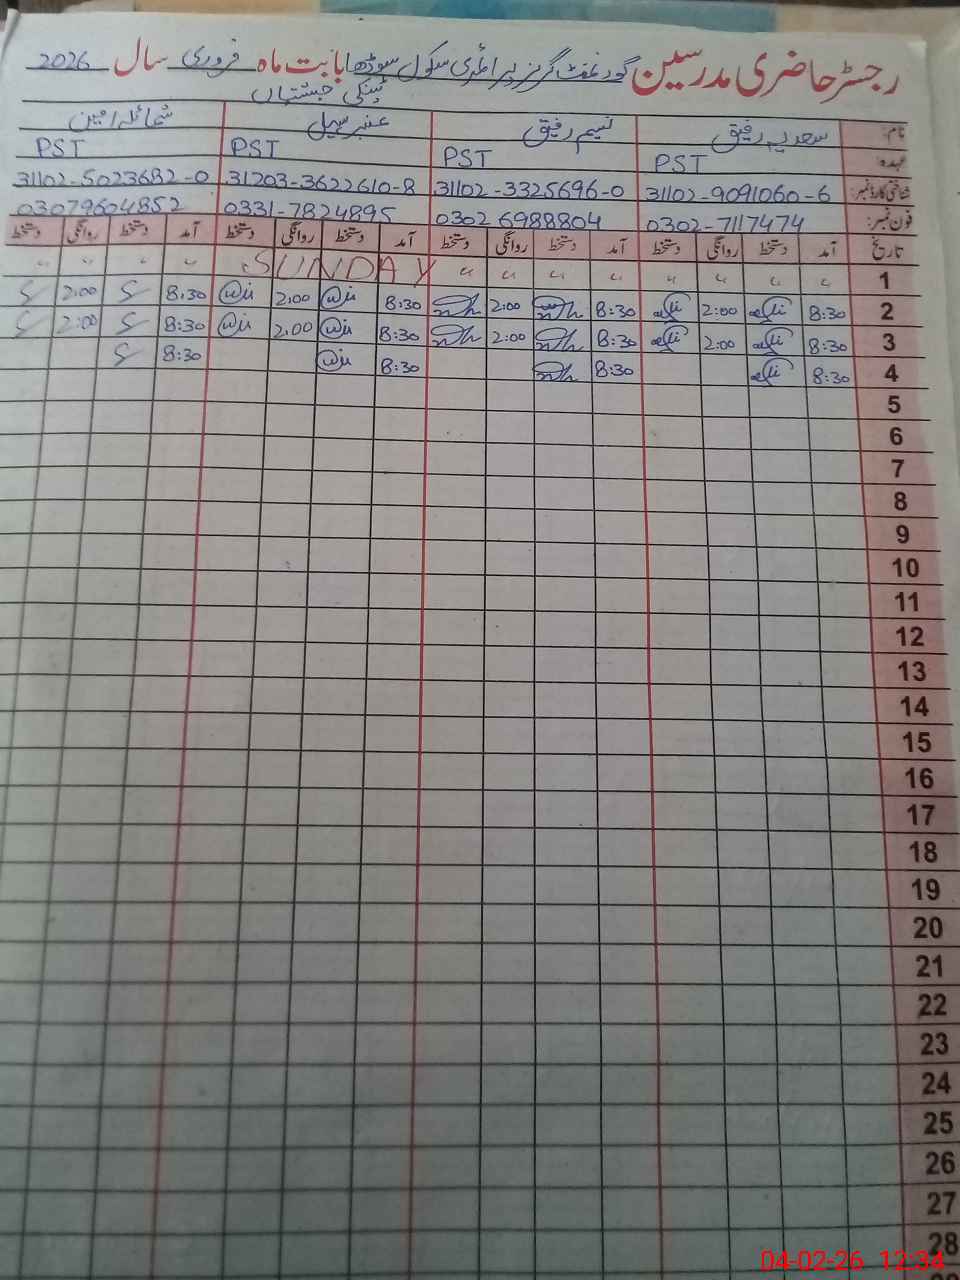 رجسٹر حاضری مدرسین گورنمنٹ گرلز پرائمری سکول سوڈھا بابت ماہ فروری سال 2026
ٹینکی چشتیاں
نام: سعدیہ رفیق نسیم رفیق عنبر سہیل شمائلہ امین
عہدہ: PST PST PST PST
شناختی کارڈ نمبر: 31102-9091060-6 31102-3325696-0 31203-3622610-8 31102-5023682-0
فون نمبر: 0302-7117474 0302 6988804 0331-7824895 03079604852
تاریخ آمد دستخط روانگی دستخط آمد دستخط روانگی دستخط آمد دستخط روانگی دستخط آمد دستخط روانگی دستخط
1 " " " " " " " " SUNDAY " " " "
2 8:30 2:00 8:30 2:00 8:30 2:00 8:30 2:00
3 8:30 2:00 8:30 2:00 8:30 2:00 8:30 2:00
4 8:30 8:30 8:30 8:30
5
6
7
8
9
10
11
12
13
14
15
16
17
18
19
20
21
22
23
24
25
26
27
28
04-02-26 12:34